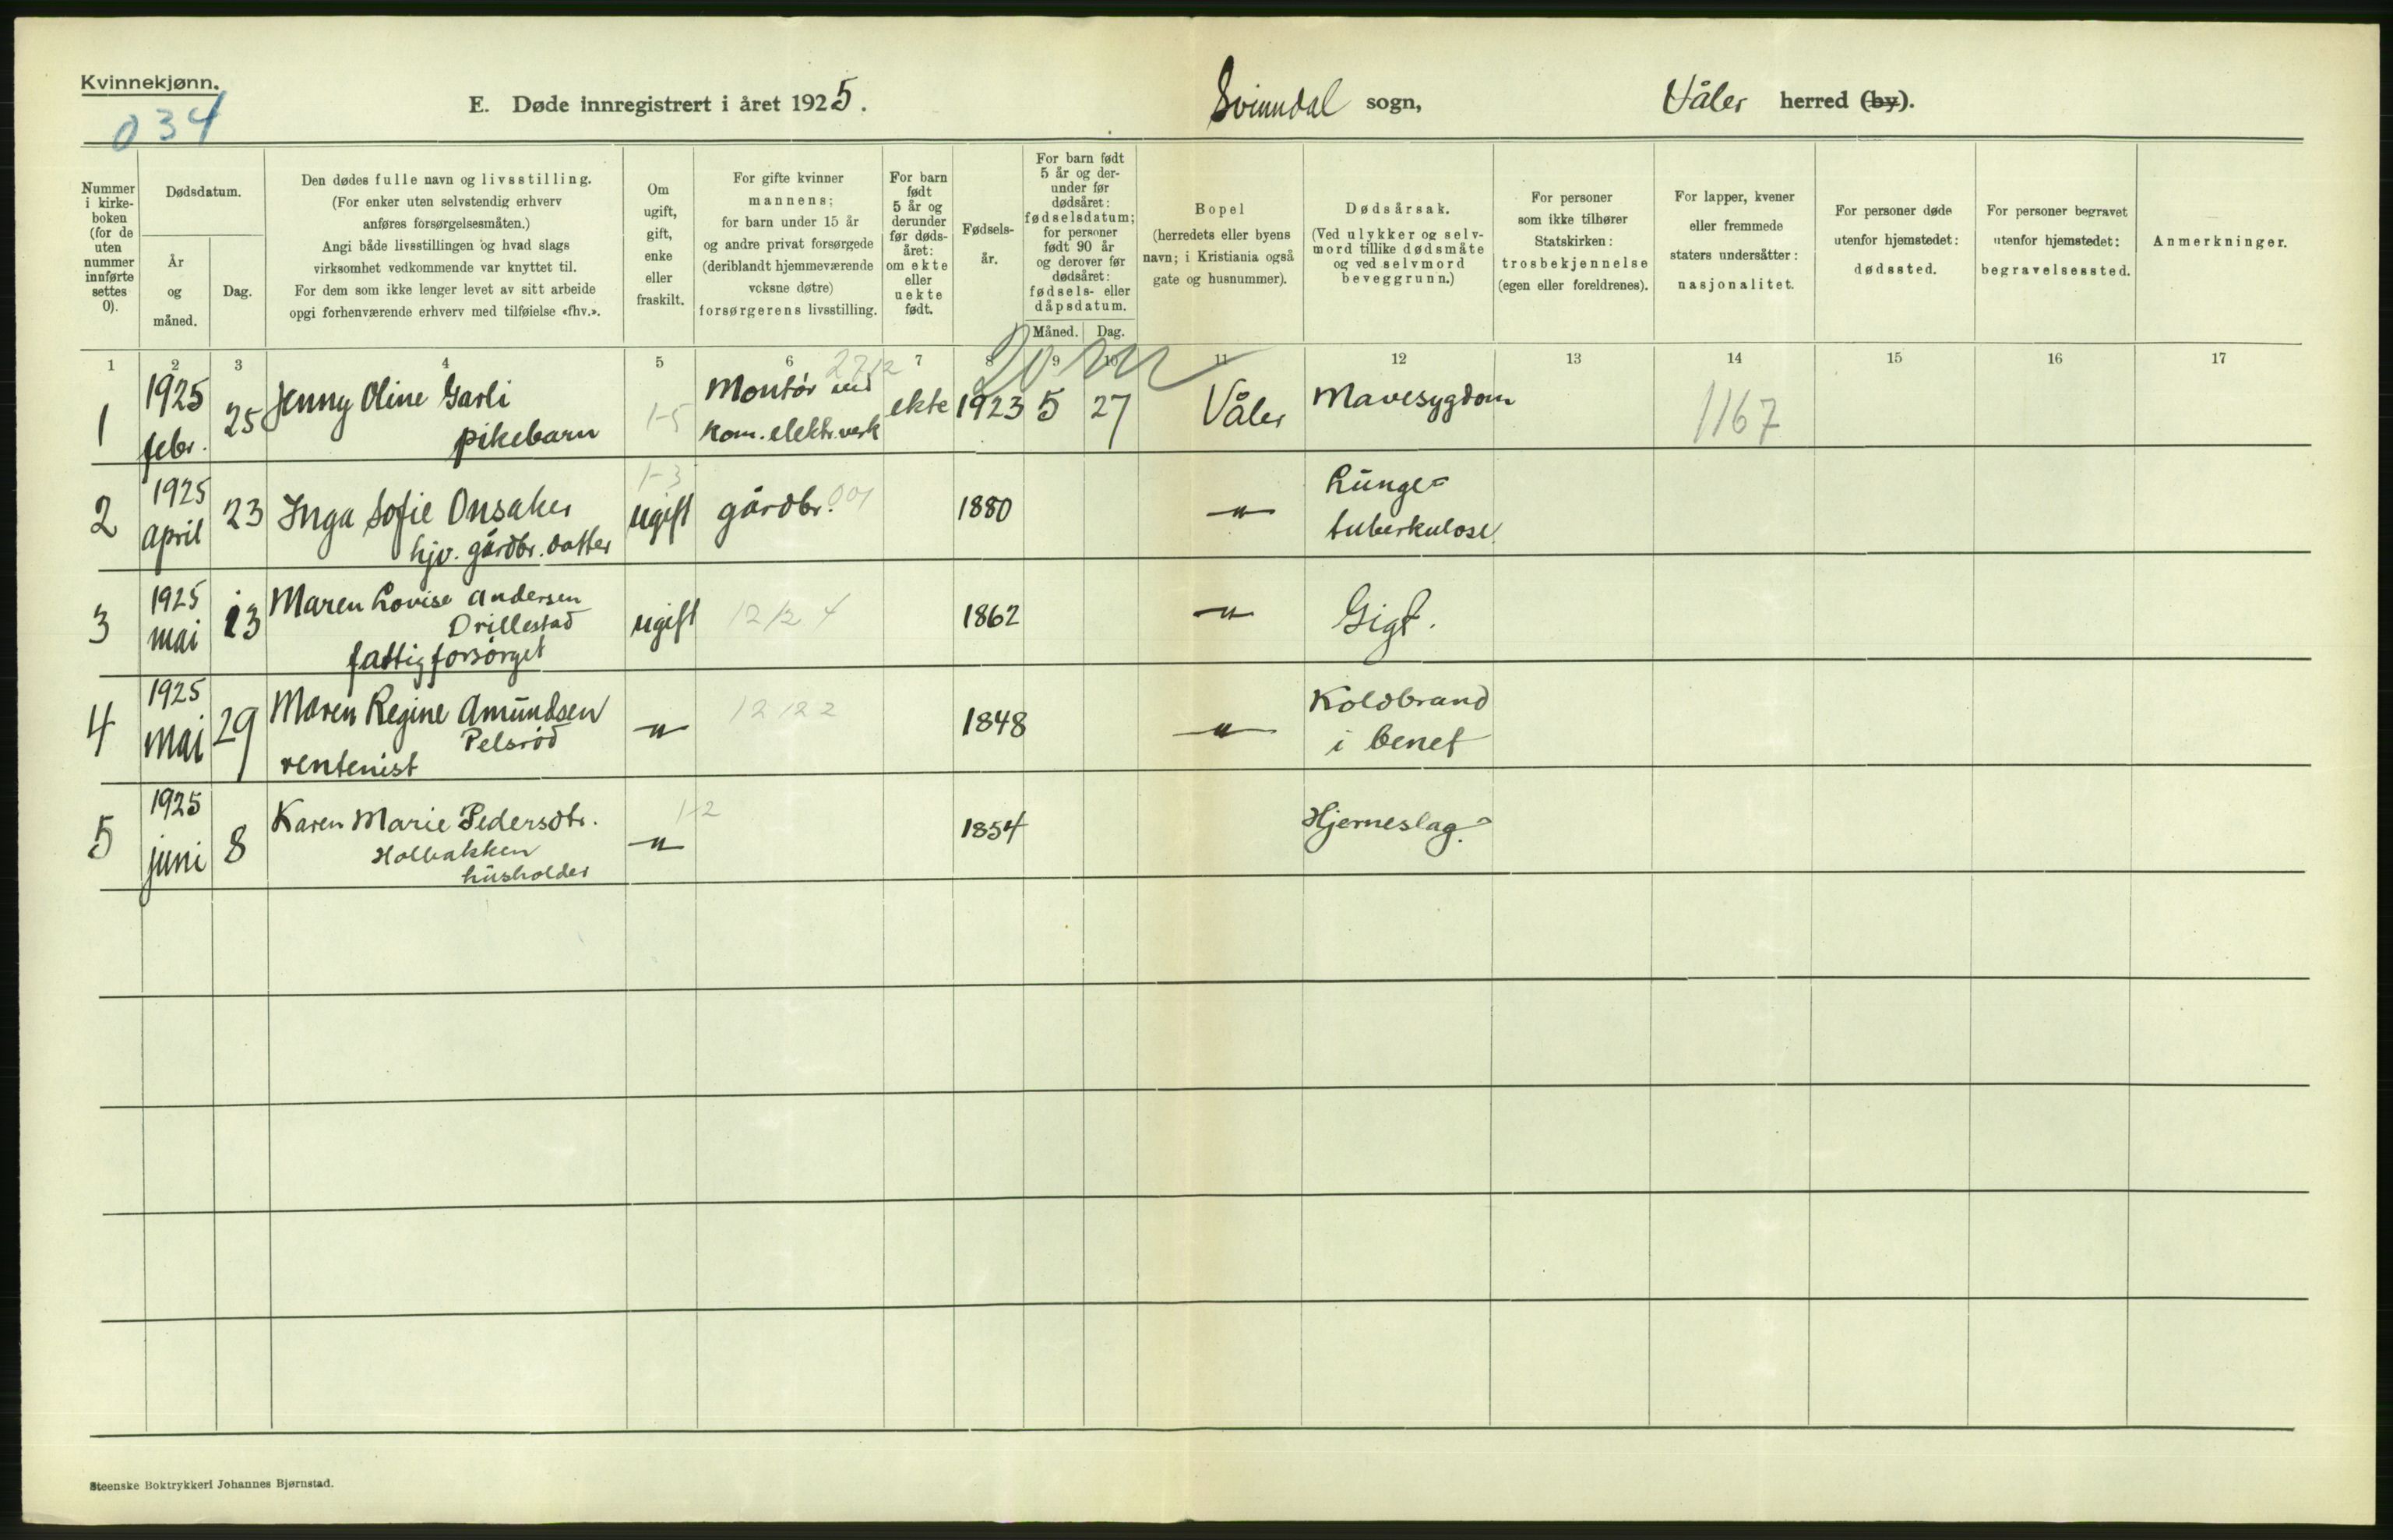 Kvinnekjønn.
034
E. Døde innregistrert i året 1925.
Svinndal sogn,
Våler herred (by).
Nummer
i kirke-
boken
(for de
uten
nummer
innførte
settes
0).
Dødsdatum.
År
og
måned.
Dag.
Den dødes fulle navn og livsstilling.
(For enker uten selvstendig erhverv
anføres forsørgelsesmåten.)
Angi både livsstillingen og hvad slags
virksomhet vedkommende var knyttet til.
For dem som ikke lenger levet av sitt arbeide
opgi forhenværende erhverv med tilføielse «fhv.».
Om
ugift,
gift,
enke
eller
fraskilt.
For gifte kvinner
mannens;
for barn under 15 år
og andre privat forsørgede
(deriblandt hjemmeværende
voksne døtre)
forsørgerens livsstilling.
For barn
født
5 år og
derunder
før døds-
året:
om ekte
eller
uekte
født.
Fødsels-
år.
For barn født
5 år og der-
under før
dødsåret:
fødselsdatum;
for personer
født 90 år
og derover før
dødsåret:
fødsels- eller
dåpsdatum.
Måned. Dag.
Bopel
(herredets eller byens
navn; i Kristiania også
gate og husnummer).
Dødsårsak.
(Ved ulykker og selv-
mord tillike dødsmåte
og ved selvmord
beveggrunn.)
For personer
som ikke tilhører
Statskirken:
trosbekjennelse
(egen eller foreldrenes).
For lapper, kvener
eller fremmede
staters undersåtter:
nasjonalitet.
For personer døde
utenfor hjemstedet:
dødssted.
For personer begravet
utenfor hjemstedet:
begravelsessted.
Anmerkninger.
1 2 3 4 5 6 7 8 9 10 11 12 13 14 15 16 17
1
1925
febr.
25
Jenny Oline Garli
pikebarn
1-5
Montør ved
kom. elektr. verk
ekte
1923 5 27
Våler
Mavesygdom
1167
2
1925
april
23
Inga Sofie Onsaker
hjv. gårdbr. datter
1-3
ugift
gårdbr. 001
1880
-"-
Lunge-
tuberkulose
3
1925
mai
13
Maren Lovise Andersen
Drillestad
fattigforsørget
ugift
12 12 4
1862
-"-
Gigt.
4
1925
mai
29
Maren Regine Amundsen
Pelsrød
rentenist
-"-
12 122
1848
-"-
Koldbrand
i benet
5
1925
juni
8
Karen Marie Pedersdtr.
Holbakken
husholder
1-2
-"-
1854
Hjerneslag.
Steenske Boktrykkeri Johannes Bjørnstad.